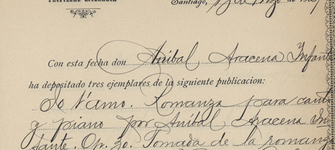 Santiago,
Con esta fecha don Anibal Aracena Infanta
ha depositado tres ejemplares de la siguiente publicacion:
Io t'amo. Romanza para canto
y piano por Anibal Aracena In
fante. Op. 20. Tomada de la romanza